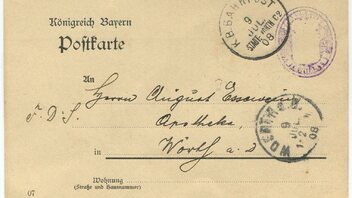 Königreich Bayern
Postkarte
K.B. BAHNPOST
9
JUL
08
An
Herrn August
F. D. S.
Apotheke,
in Wörth a. D.
WOERTH
9
JUL
08
Wohnung
(Straße und Hausnummer)
07